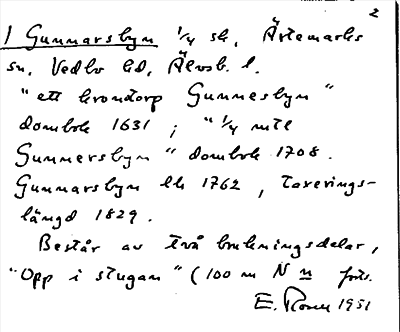 2
1 Gunnarsbyn 1/4 sk, Ärtemarks
sn. Vedbo hd, Älvsb. l.
"ett krontorp Gunnesbyn"
dombok 1631 ; "1/4 mtl
Gunnersbyn" dombok 1708.
Gunnarsbyn lk 1762, Taxerings-
längd 1829.
Består av två brukningsdelar,
"Opp i stugan" (100 m N n forts.
E. Rosen 1951